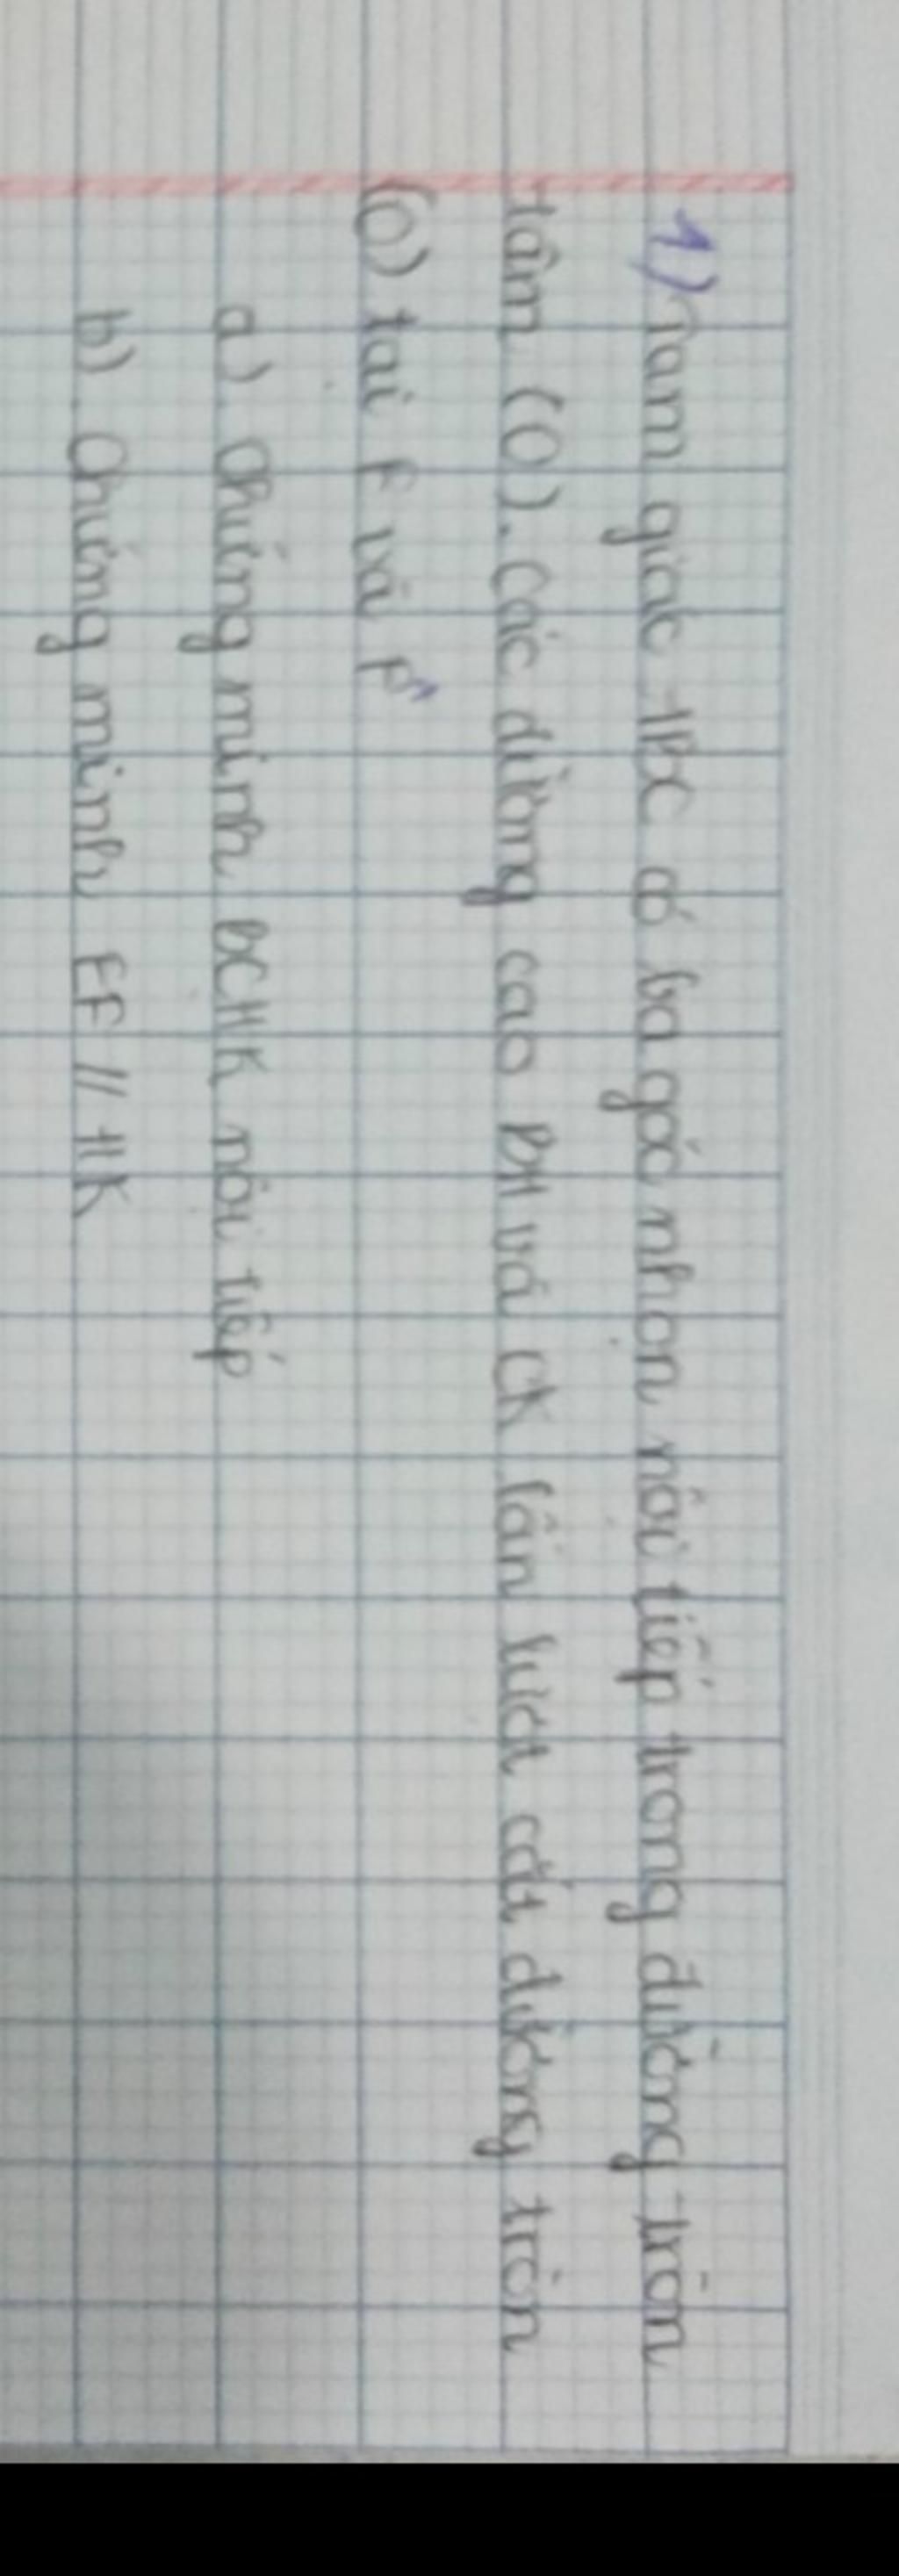 1) Tam giác ABC có ba góc nhọn nội tiếp trong đường tròn
tâm (O). Các đường cao BH và CK lần lượt cắt đường tròn
(O) tại E và F
a). Chứng minh BCHK nội tiếp
b). Chứng minh EF // HK